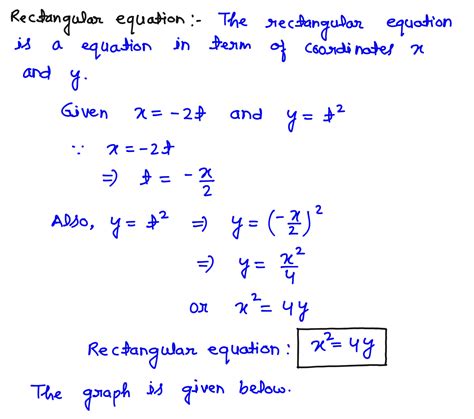 Rectangular equation :- The rectangular equation
is a equation in term of coordinates x
and y.
Given x = -2t and y = t²
∵ x = -2t
⇒ t = -x/2
Also, y = t² ⇒ y = (-x/2)²
⇒ y = x²/4
or x² = 4y
Rectangular equation : x² = 4y
The graph is given below.